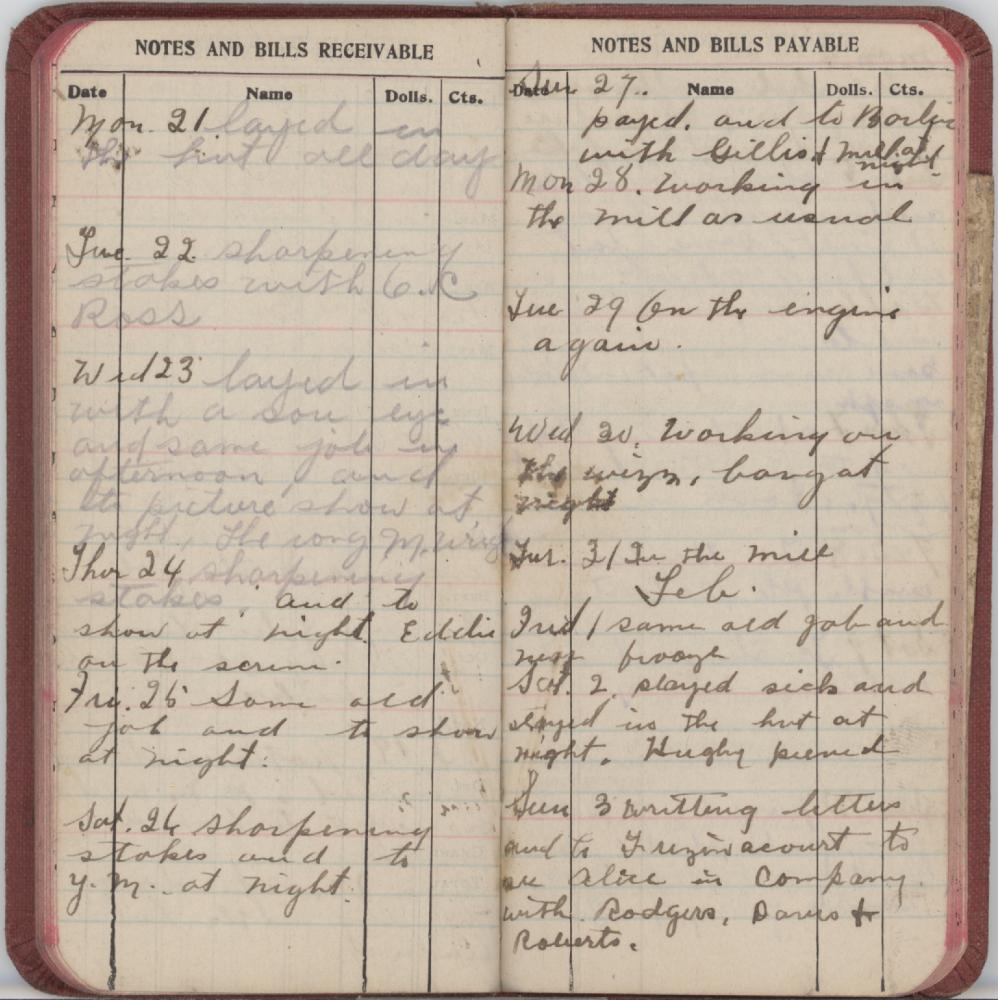 NOTES AND BILLS RECEIVABLE
Date Name Dolls. Cts.
Mon. 21 layed in
the hut all day
Tue. 22 sharpening
stakes with C. C
Ross
Wed 23 layed in
with a sou eye
and same job in
afternoon and
to picture show at
night, The
Thor 24 sharpening
stakes, and to
show at night. Eddie
on the screne.
Fri. 25 Same old
job and to show
at night.
Sat. 26 sharpening
stakes and to
Y.M. at night.
NOTES AND BILLS PAYABLE
Date Name Dolls. Cts.
Sun 27.
payed. and to
with Gillis & Mill. at
night
Mon 28. Working in
the mill as usual
Tue 29 On the engine
again.
Wed 30. Working on
the at
night
31 In the mill
Feb.
Frid 1 same old job and
near frooze
Sat. 2. played sick and
stayed in the hut at
night. Hughy
Sun 3 writting letters
and to to
see Alice in Company
with Rodgers, Davis &
Roberts.